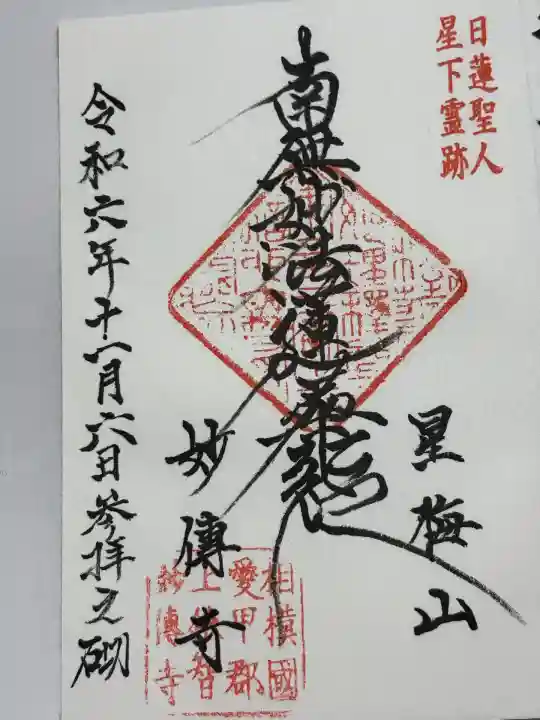 日蓮聖人
星下霊跡
南無妙法蓮華経
星梅山
妙傳寺
相模國
愛甲郡
上依智
妙傳寺
令和六年十一月六日参拝之砌